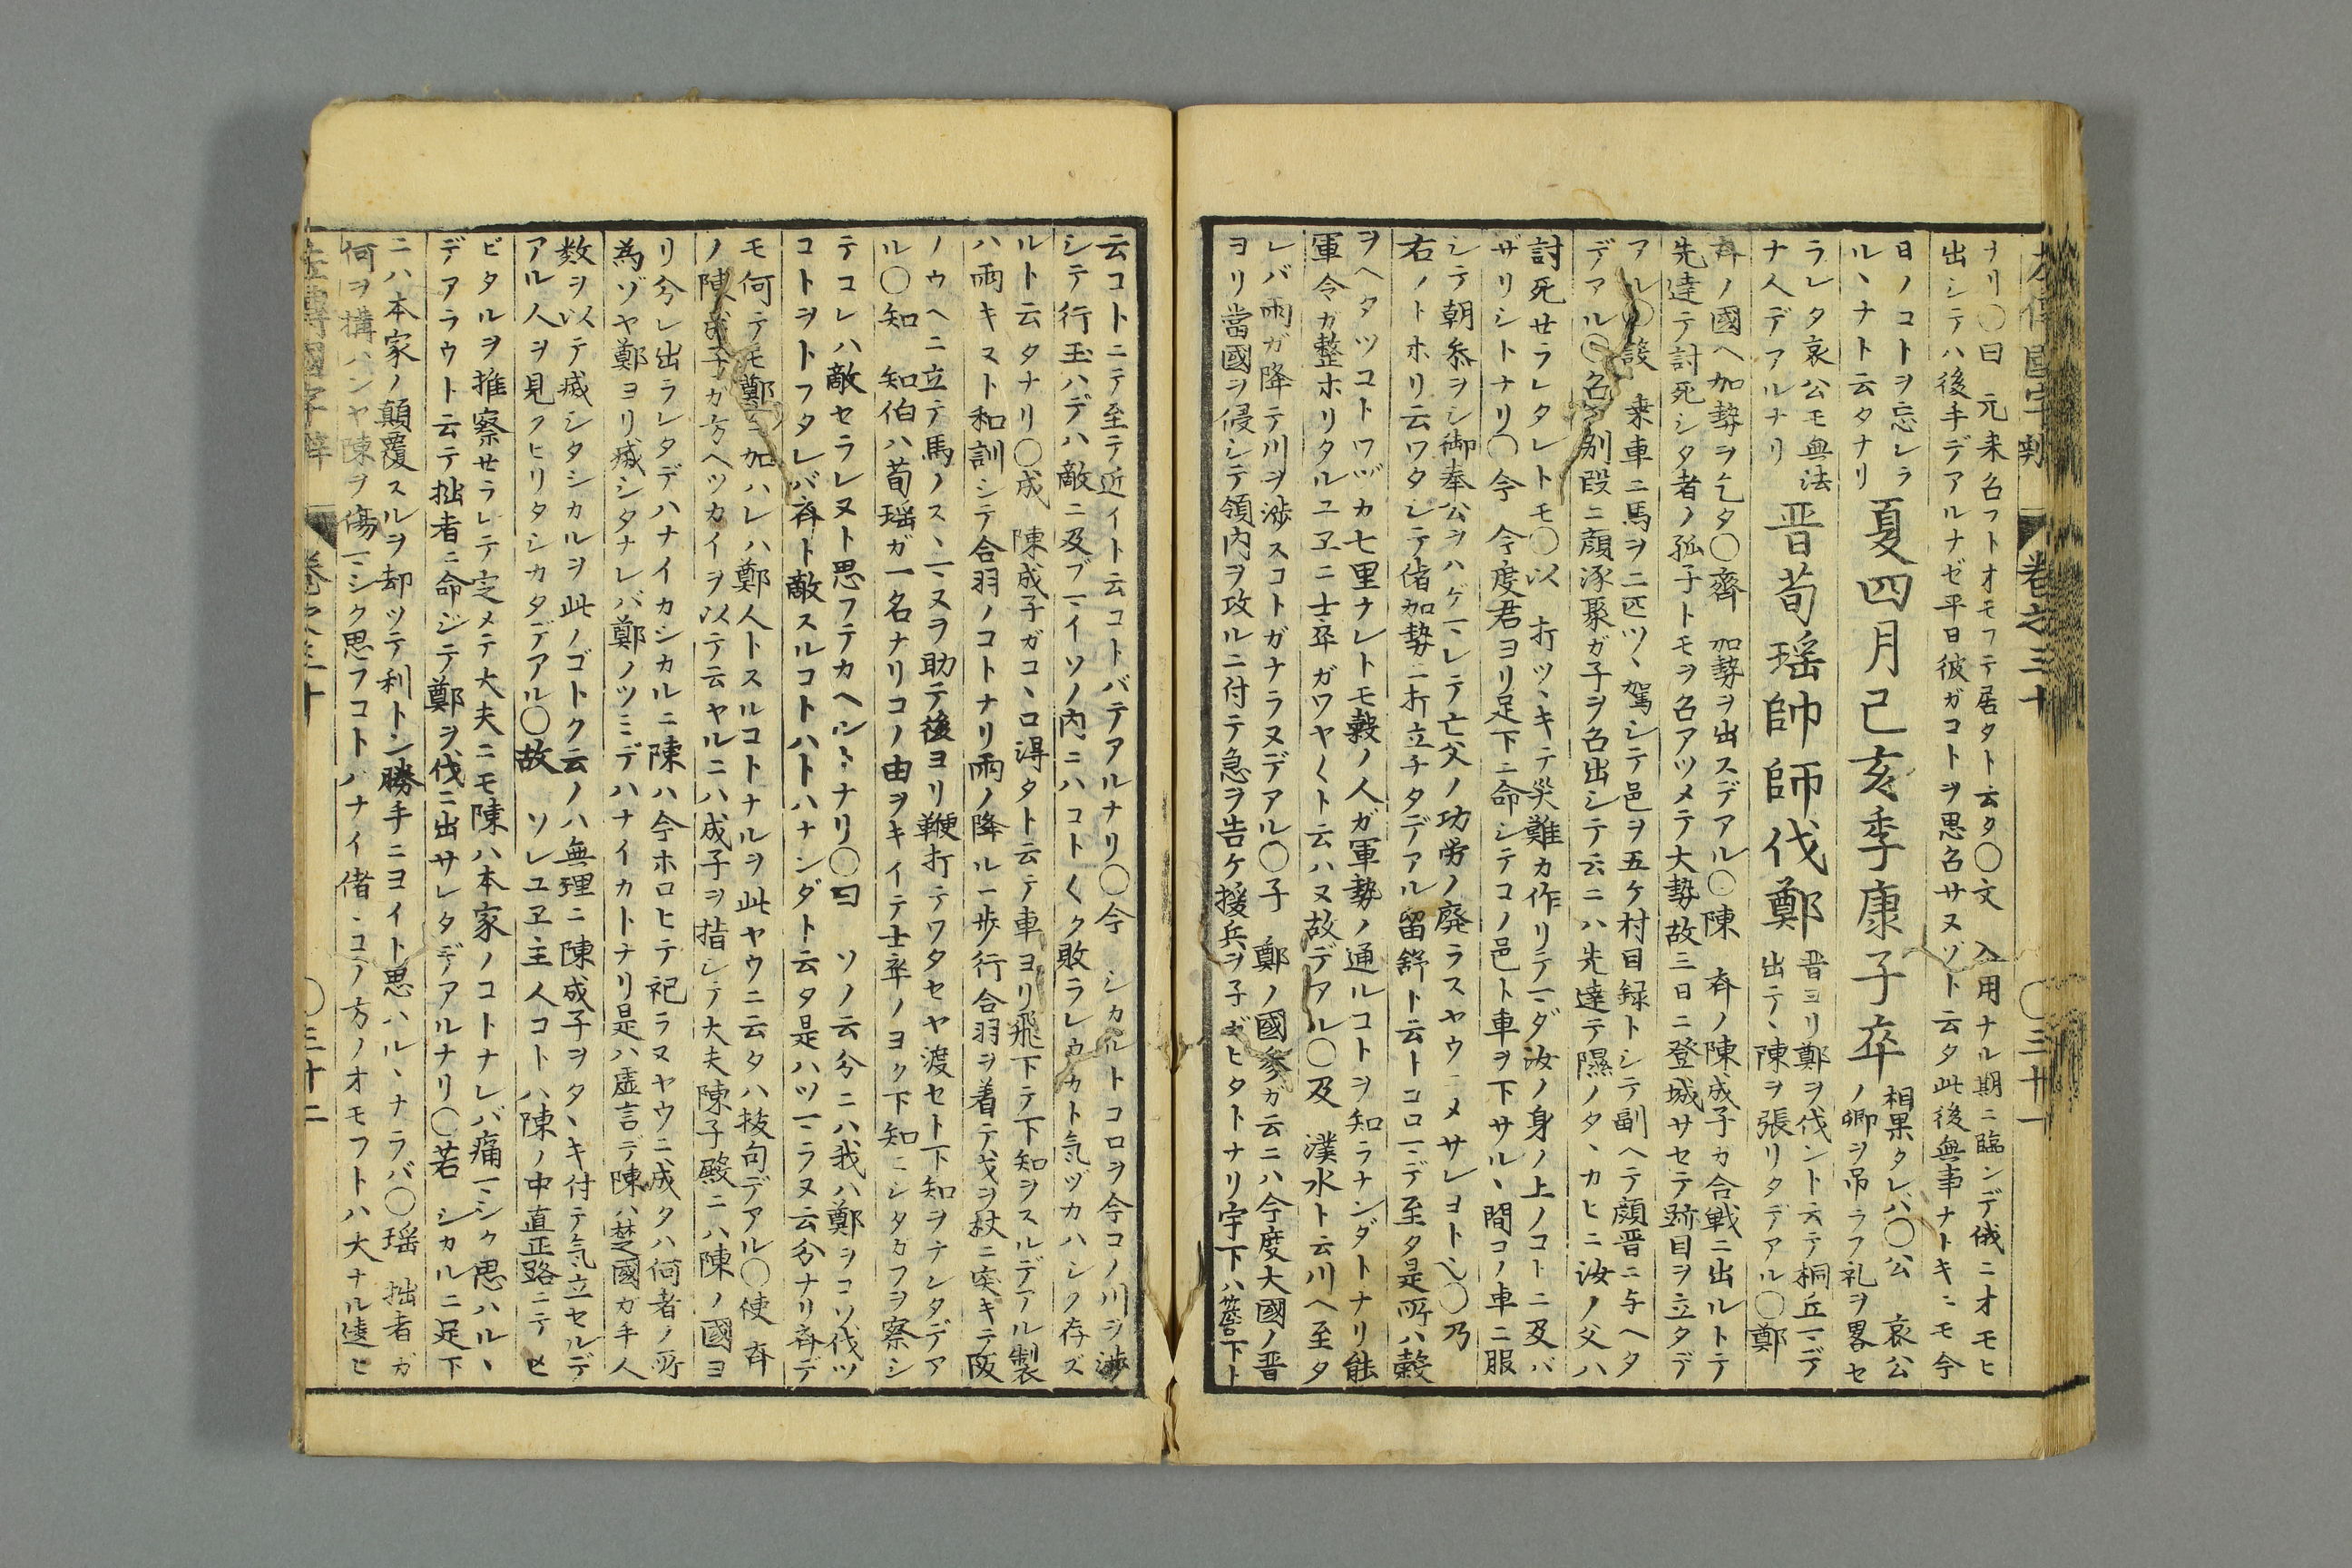 左傳國字辯 巻之三十 〇三十一
ナリ〇曰 元来名フトオモフテ居タト云タ〇文 入用ナル期ニ臨ンデ俄ニオモヒ
出シテハ後手デアルナゼ平日彼ガコトヲ思召サヌゾト云タ此後無事ナトキニモ今
日ノコトヲ忘レラ
ルヽナト云タナリ
夏四月己亥季康子卒
相果タレバ〇公 哀公
ノ卿ヲ吊ラフ礼ヲ畧セ
ラレタ哀公モ無法
ナ人デアルナリ
晋荀瑶帥師伐鄭
晋ヨリ鄭ヲ伐ント云テ桐丘マデ
出テ、陳ヲ張リタデアル〇鄭
斉ノ國ヘ加勢ヲ乞タ〇齊 加勢ヲ出スデアル〇陳 斉ノ陳成子カ合戦ニ出ルトテ
先達テ討死シタ者ノ孤子トモヲ名アツメテ大勢故三日ニ登城サセテ跡目ヲ立タデ
アル〇設 乗車ニ馬ヲ二匹ツヽ駕シテ邑ヲ五ケ村目録トシテ副ヘテ顔晋ニ与ヘタ
デアル〇名 別段ニ顔涿聚ガ子ヲ名出シテ云ニハ先達テ隰ノタヽカヒニ汝ノ父ハ
討死セラレタレトモ〇以 打ツヽキテ災難カ作リテマダ汝ノ身ノ上ノコトニ及バ
ザリシトナリ〇今 今度君ヨリ足下ニ命シテコノ邑ト車ヲ下サルヽ間コノ車ニ服
シテ朝叅ヲシ御奉公ヲハゲマレテ亡父ノ功労ノ廃ラスヤウニメサレヨト也〇乃
右ノトホリ云ワタシテ偖加勢ニ打立チタデアル留舒ト云トコロマデ至タ是所ハ榖
ヲヘタツコトワヅカ七里ナレトモ榖ノ人ガ軍勢ノ通ルコトヲ知ラナンダトナリ能
軍令カ整ホリタルユヱニ士卒ガワヤくト云ハヌ故デアル〇及 濮水ト云川ヘ至タ
レバ雨ガ降テ川ヲ渉スコトガナラヌデアル〇子 鄭ノ國參ガ云ニハ今度大國ノ晋
ヨリ當國ヲ侵シテ領内ヲ攻ルニ付テ急ヲ告ケ援兵ヲ子ガヒタトナリ宇下ハ簷下ト
云コトニテ至テ近イト云コトバテアルナリ〇今 シカルトコロヲ今コノ川ヲ渉
シテ行玉ハデハ敵ニ及ブマイソノ内ニハコトくク敗ラレウカト気ヅカハシク存ズ
ルト云タナリ〇成 陳成子ガコヽロ得タト云テ車ヨリ飛下テ下知ヲスルデアル製
ハ雨キヌト和訓シテ合羽ノコトナリ雨ノ降ル一歩行合羽ヲ着テ戈ヲ杖ニ突キテ阪
ノウヘニ立テ馬ノスヽマヌヲ助テ後ヨリ鞭打テワタセヤ渡セト下知ヲテシタデア
ル〇知 知伯ハ荀瑶ガ一名ナリコノ由ヲキイテ士卒ノヨク下知ニシタカフヲ察シ
テコレハ敵セラレヌト思フテカヘルヽナリ〇曰 ソノ云分ニハ我ハ鄭ヲコソ伐ツ
コトヲトフタレバ斉ト敵スルコトハトハナンダト云タ是ハツマラヌ云分ナリ斉デ
モ何テモ鄭ニ加ハレハ鄭人トスルコトナルヲ此ヤウニ云タハ抜句デアル〇使 斉
ノ陳成子ガ方ヘツカイヲ以テ云ヤルニハ成子ヲ指シテ大夫陳子殿ニハ陳ノ國ヨ
リ分レ出ラレタデハナイカシカルニ陳ハ今ホロヒテ祀ラヌヤウニ成タハ何者ノ所
為ゾヤ鄭ヨリ滅シタナレバ鄭ノツミデハナイカトナリ是ハ虚言デ陳ハ楚國カ手人
数ヲ以テ滅シタシカルヲ此ノゴトク云ノハ無理ニ陳成子ヲタヽキ付テ気立セルデ
アル人ヲ見クヒリタシカタデアル〇故 ソレユヱ主人コトハ陳ノ中直正路ニテ𪜈
ビタルヲ推察セラレテ定メテ大夫ニモ陳ハ本家ノコトナレバ痛マシク思ハルヽ
デアラウト云テ拙者ニ命ジテ鄭ヲ伐ニ出サレタデアルナリ〇若 シカルニ足下
ニハ本家ノ顛覆スルヲ却ツテ利トシ勝手ニヨイト思ハルヽナラバ〇瑶 拙者ガ
何ヲ搆ハンヤ陳ヲ傷マシク思フコトハナイ偖コノ方ノオモフトハ大ナル違ヒ
左傳國字辯 巻之三十 〇三十二